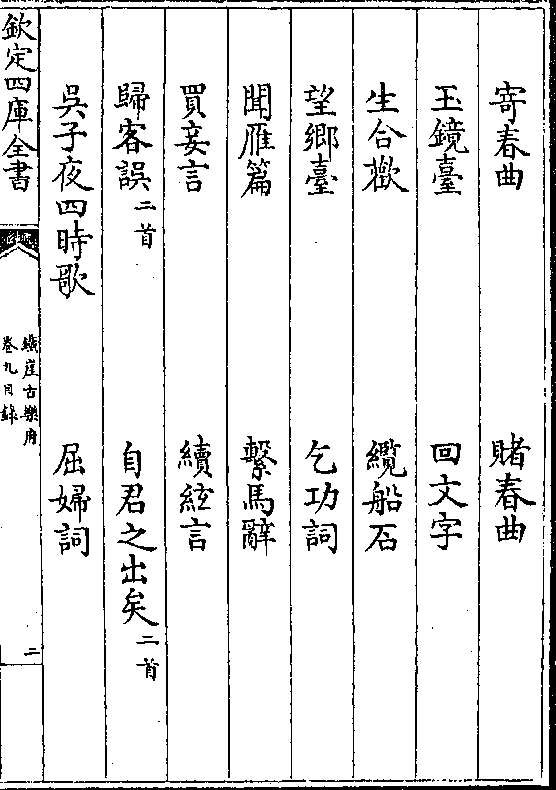 寄春曲 賭春曲
玉鏡臺 回文字
生合歡 纜船石
望鄉臺 乞功詞
聞雁篇 繫馬辭
買妾言 續絃言
歸客誤二首 自君之出矣二首
吳子夜四時歌 屈婦詞
欽定四庫全書
鐵崖古樂府
卷九目錄
二